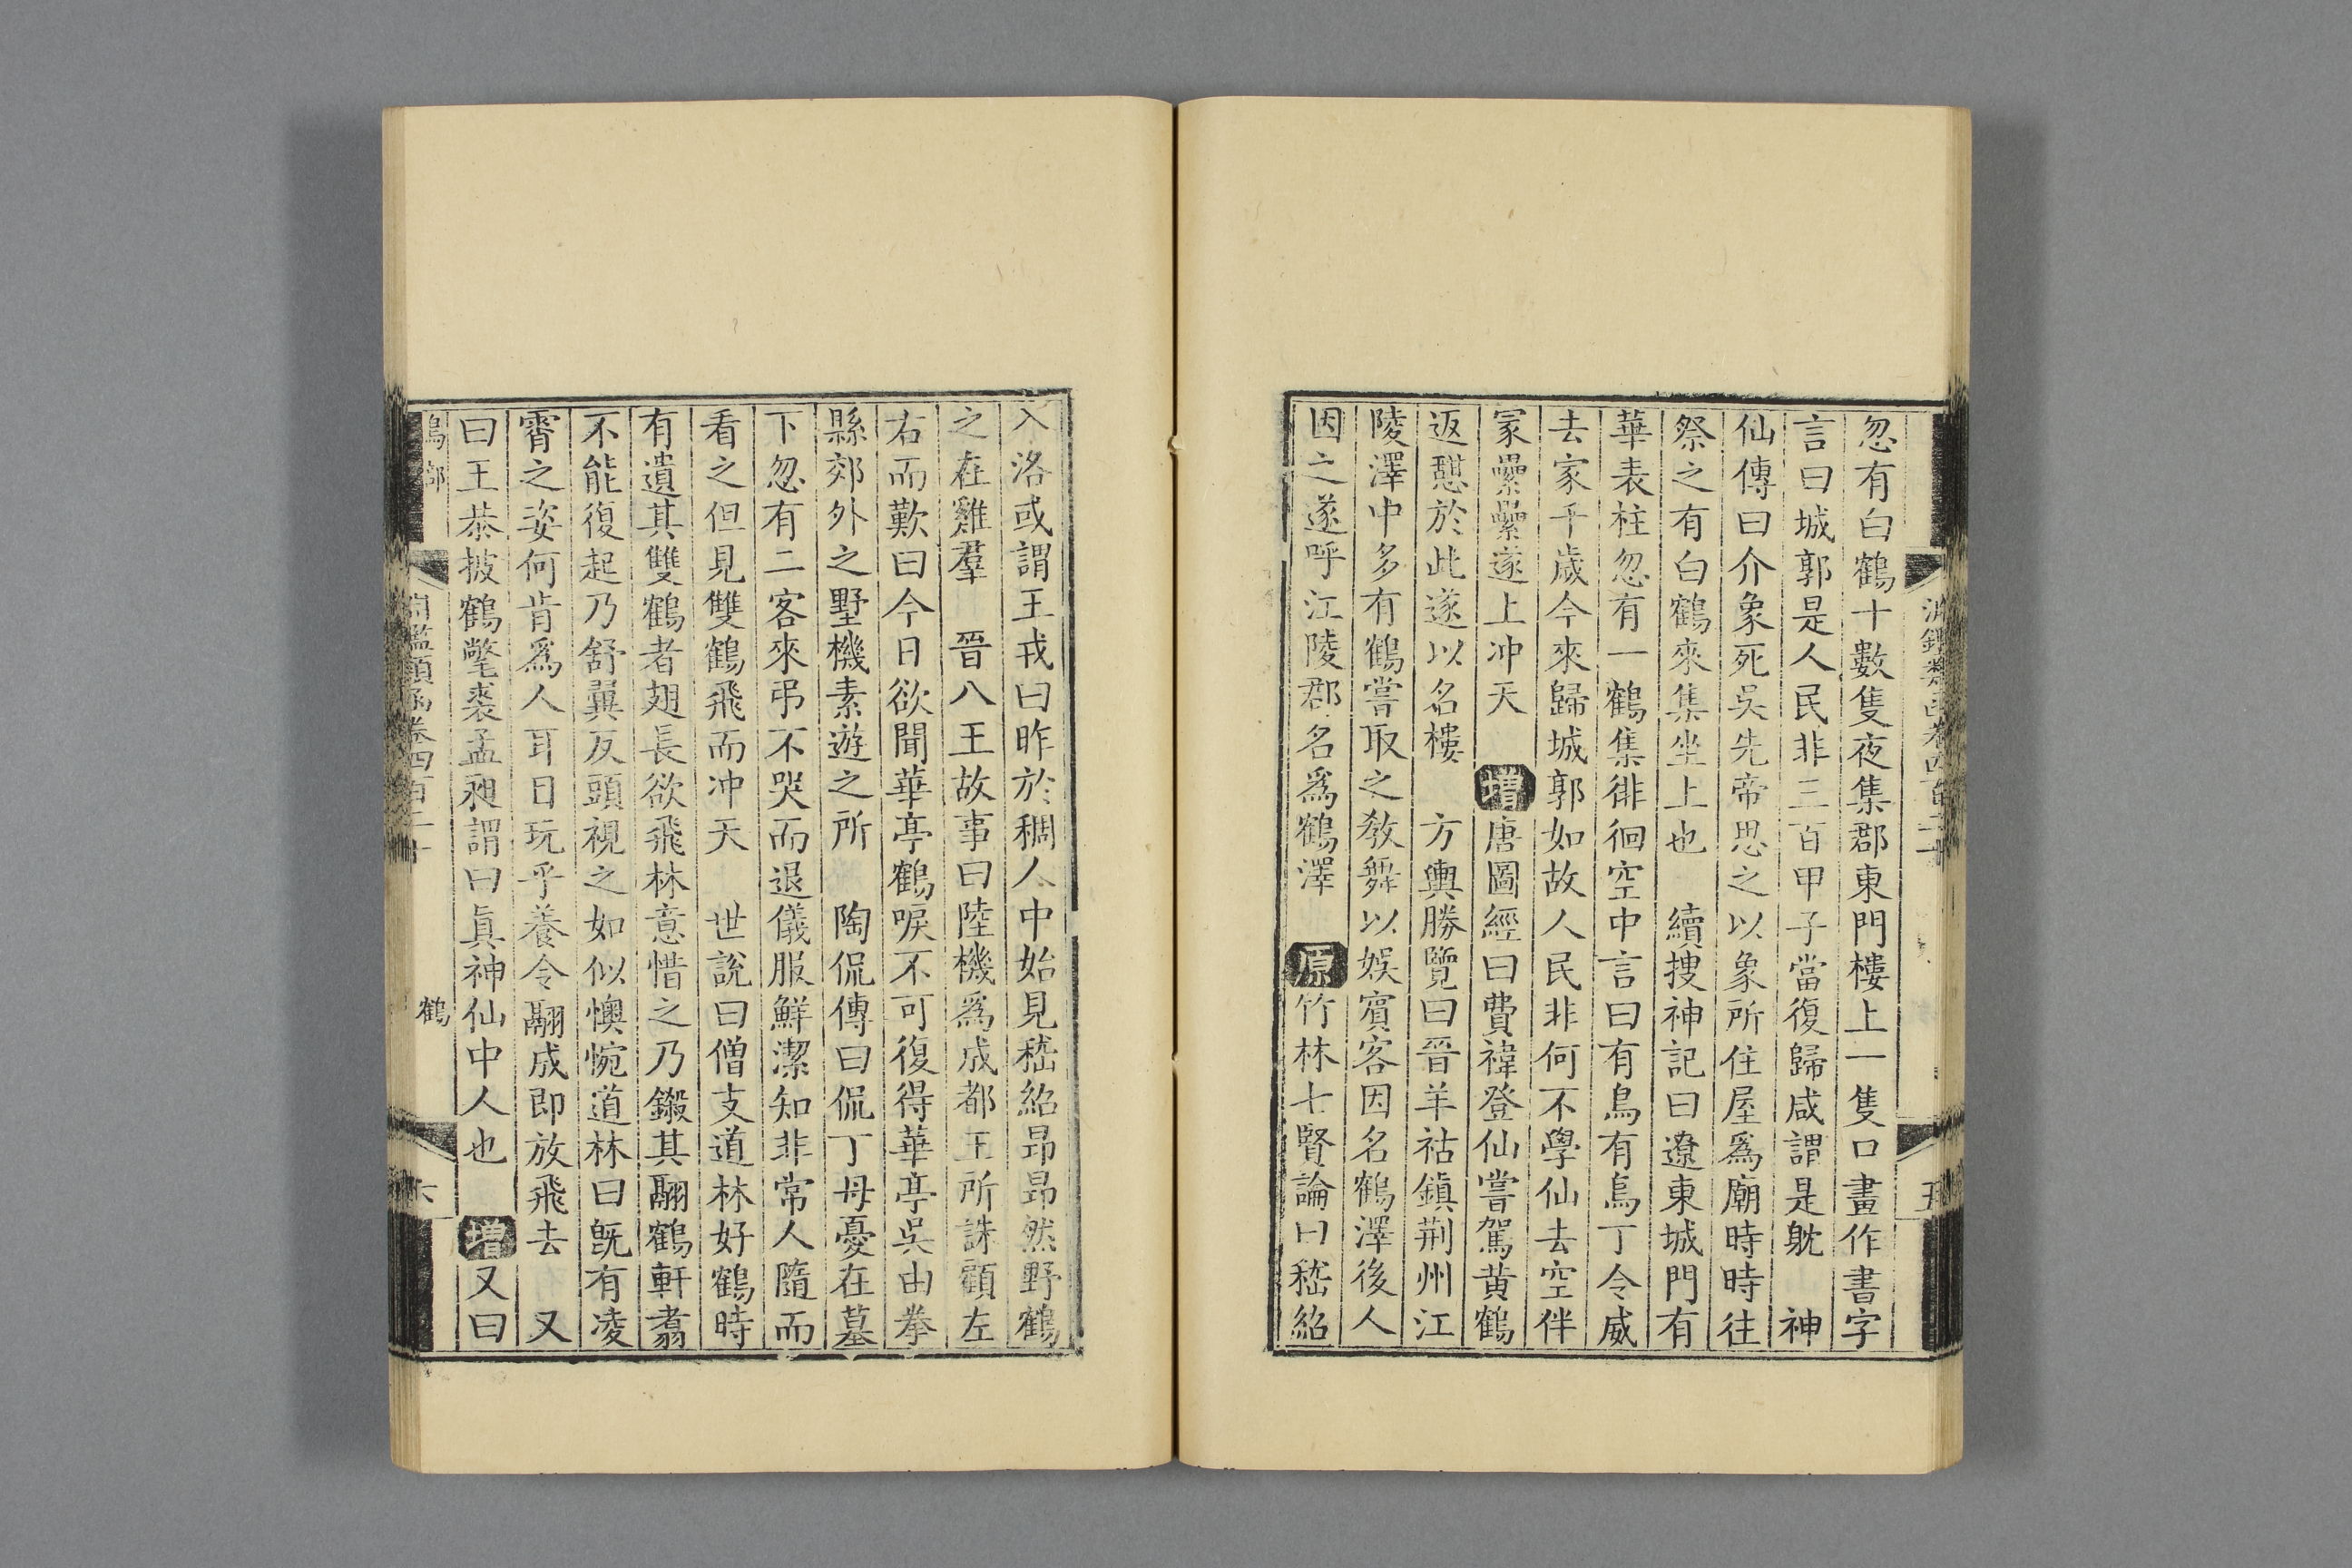 忽有白鶴十數隻夜集郡東門樓上一隻口畫作書字
言曰城郭是人民非三百甲子當復歸咸謂是躭　神
仙傳曰介象死吳先帝思之以象所住屋爲廟時時往
祭之有白鶴來集坐上也　續搜神記曰遼東城門有
華表柱忽有一鶴集徘徊空中言曰有鳥有鳥丁令威
去家千歲今來歸城郭如故人民非何不學仙去空伴
冢纍纍遂上冲天　增唐圖經曰費禕登仙嘗駕黄鶴
返憇於此遂以名樓　方輿勝覽曰晉羊祜鎮荆州江
陵澤中多有鶴嘗取之教舞以娛賓客因名鶴澤後人
因之遂呼江陵郡名爲鶴澤　原竹林七賢論曰嵇紹
入洛或謂王戎曰昨於稠人中始見嵇紹昻昻然野鶴
之在雞羣　晉八王故事曰陸機爲成都王所誅顧左
右而歎曰今日欲聞華亭鶴唳不可復得華亭吳由拳
縣郊外之墅機素遊之所　陶侃傳曰侃丁母憂在墓
下忽有二客來弔不哭而退儀服鮮潔知非常人隨而
看之但見雙鶴飛而冲天　世說曰僧支道林好鶴時
有遺其雙鶴者翅長欲飛林意惜之乃鎩其翮鶴軒翥
不能復起乃舒翼反頭視之如似懊惋道林曰旣有凌
霄之姿何肯爲人耳目玩乎養令翮成即放飛去　又
曰王恭披鶴氅裘孟昶謂曰眞神仙中人也　增又曰
鳥部　淵鑑類函卷四百二十　鶴　六